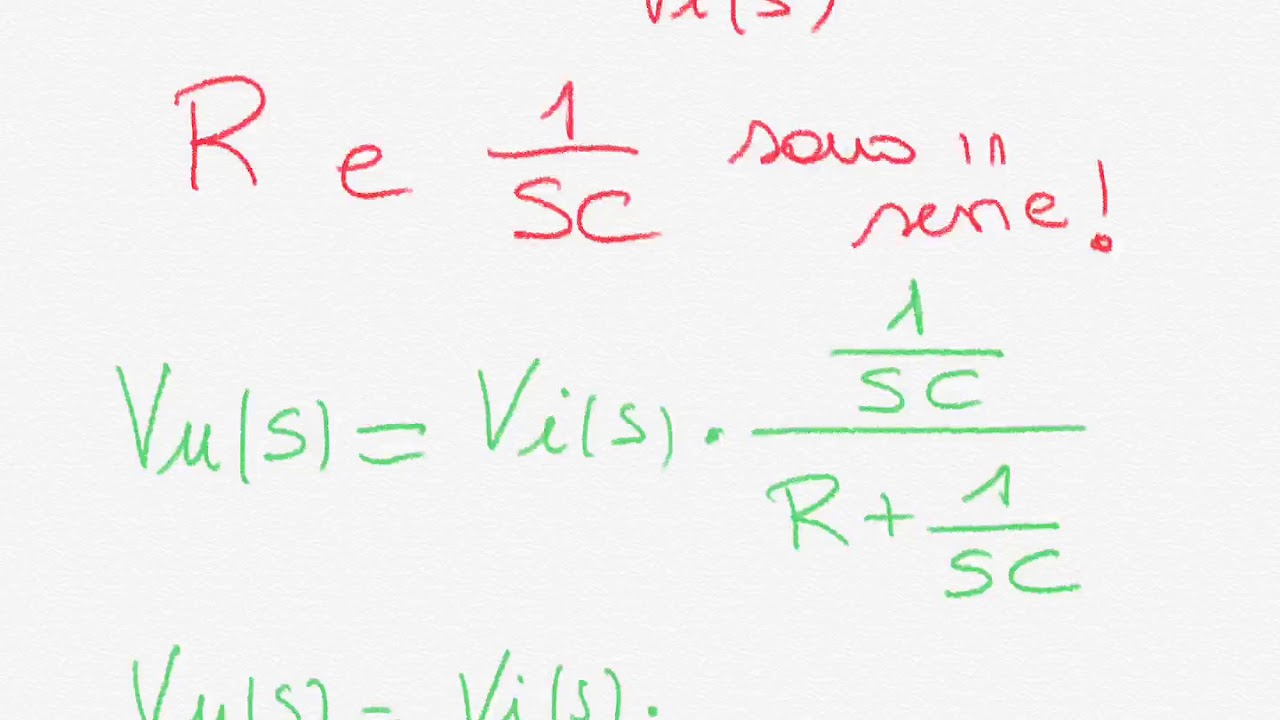 Vi(s)
R e 1/SC sono in
serie!
Vu(s) = Vi(s) · (1/SC)/(R + 1/SC)
Vu(s) = Vi(s) ·